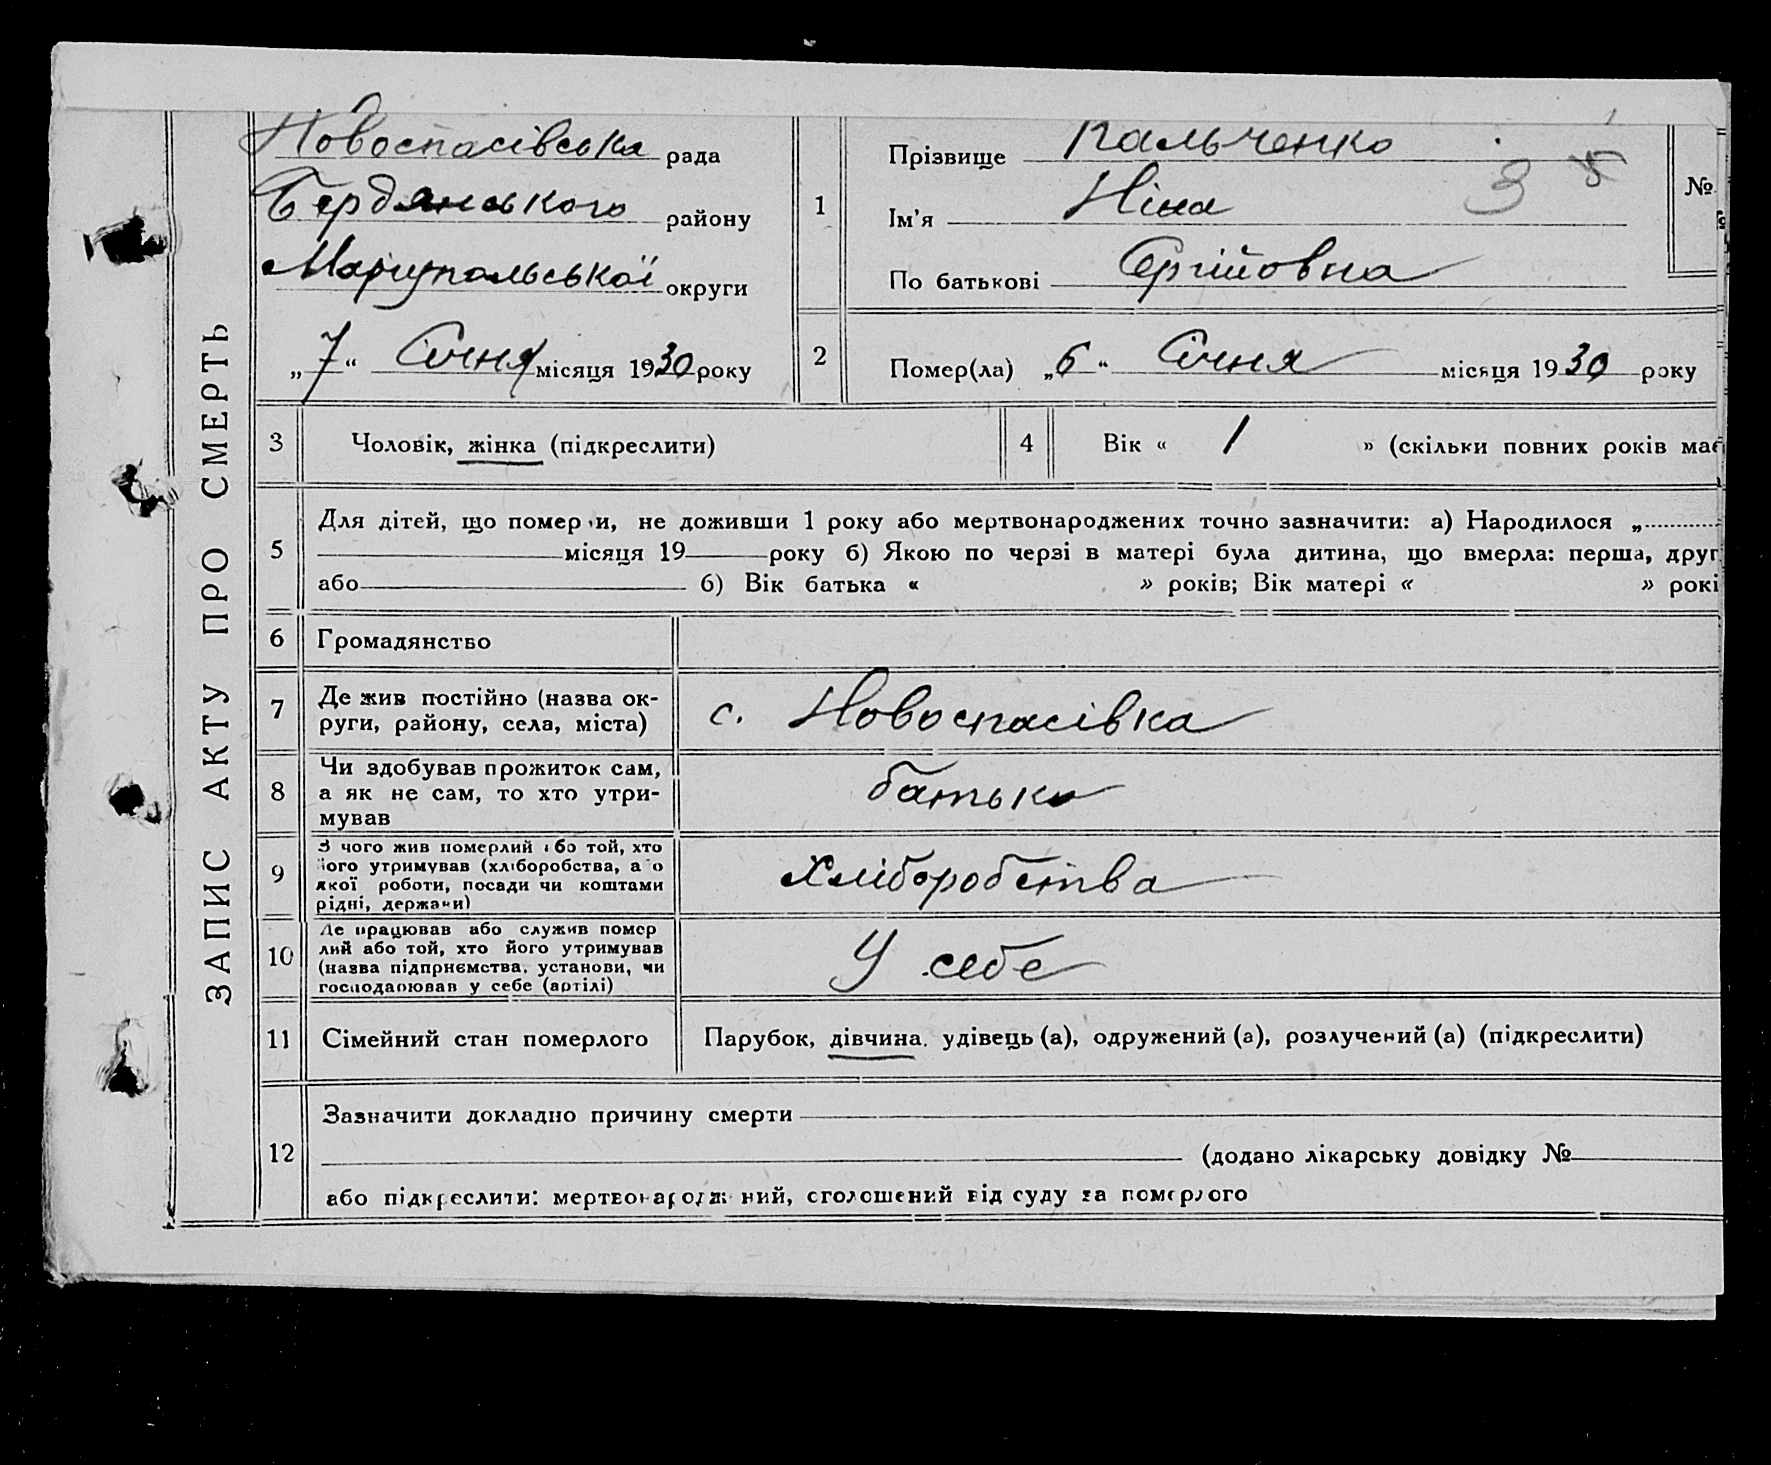 ЗАПИС АКТУ ПРО СМЕРТЬ
Новоспасівська рада
Бердянського району
Маріупольської округи
„7“ Січня місяця 1930 року
1
Прізвище Пальченко
Ім'я Ніна
По батькові Сергійовна
3
№
2
Помер(ла) „6“ Січня місяця 1930 року
3 Чоловік, жінка (підкреслити)
4 Вік « 1 » (скільки повних років має
5
Для дітей, що померли, не доживши 1 року або мертвонароджених точно зазначити: а) Народилося „
місяця 19 року б) Якою по черзі в матері була дитина, що вмерла: перша, друг
або б) Вік батька « » років; Вік матері « » рокі
6 Громадянство
7
Де жив постійно (назва ок-
руги, району, села, міста)
с. Новоспасівка
8
Чи здобував прожиток сам,
а як не сам, то хто утри-
мував
батько
9
З чого жив померлий або той, хто
його утримував (хліборобства, а о
якої роботи, посади чи коштами
рідні, держави)
Хліборобства
10
Де працював або служив помер
лий або той, хто його утримував
(назва підприємства, установи, чи
господарював у себе (артілі)
У себе
11 Сімейний стан померлого
Парубок, дівчина, удівець (а), одружений (а), розлучений (а) (підкреслити)
12
Зазначити докладно причину смерти
(додано лікарську довідку №
або підкреслити: мертвонароджений, оголошений від суду за померлого